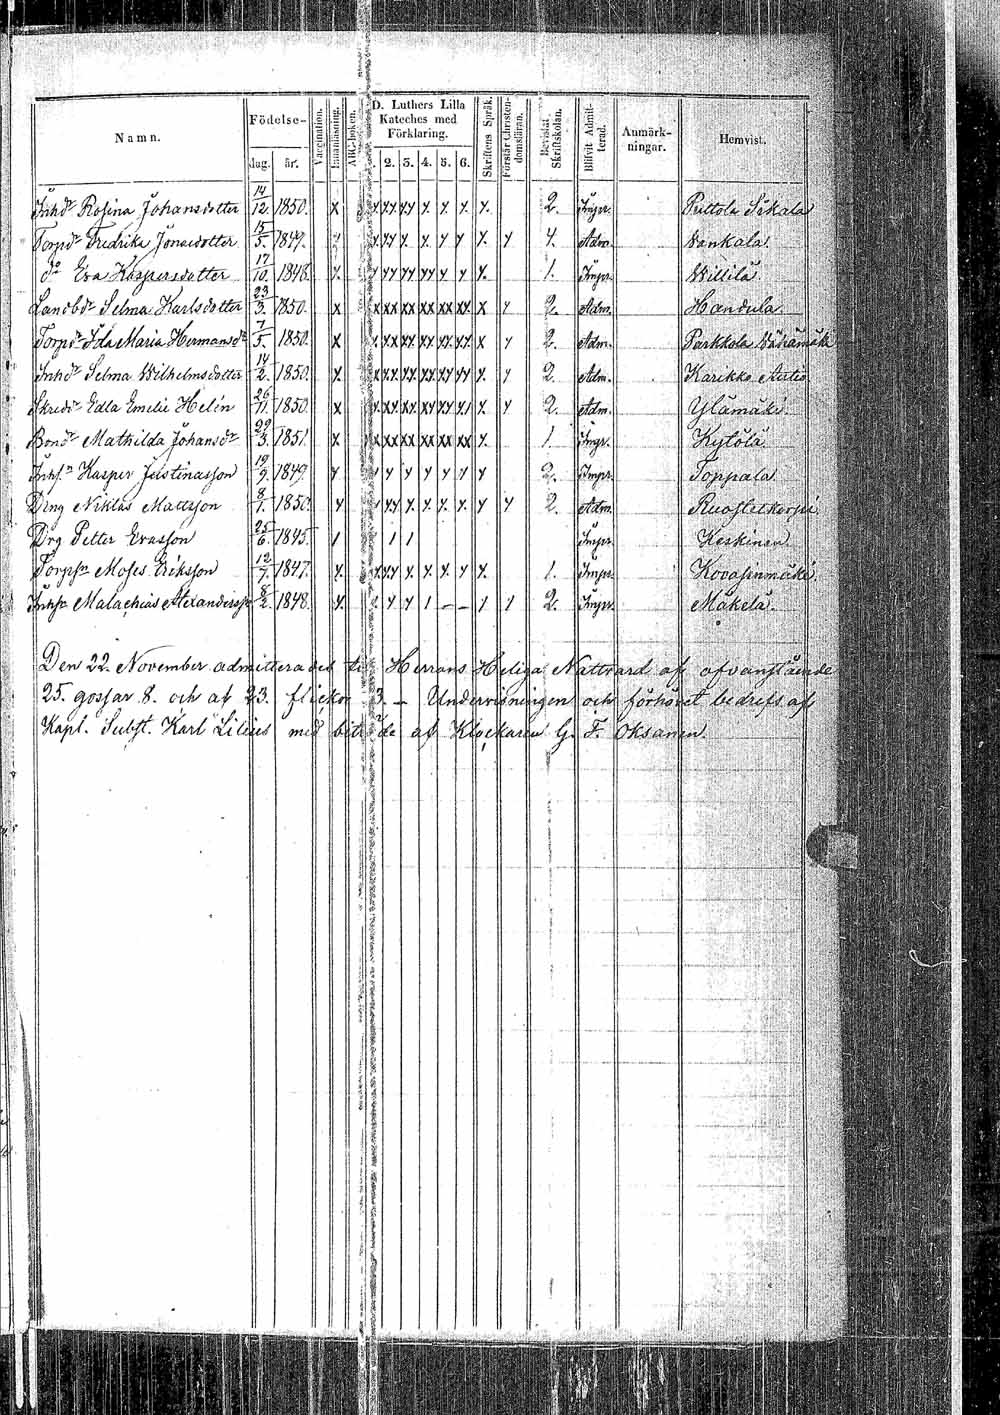 Namn. Födelse- dag. år. Vaccination. Innanläsning. ABC-boken. D. Luthers Lilla Kateches med Förklaring. 2. 3. 4. 5. 6. Skriftens Språk. Förstår Christendomsläran. Bevistat Skriftskolan. Blifvit Admitterad. Anmärkningar. Hemvist.
Inhdr Rosina Johansdotter 14/12. 1850. x 2. Impr. Puttola Sikala
Torpdr Fredrika Jonasdotter 15/5. 1849. 4. Adm. Vankala
do Eva Kaspersdotter 17/10. 1848. 1. Impr. Willilä
Landbdr Selma Karlsdotter 23/3. 1850. x xx xx xx xx xx x 2. Adm. Handula
Torpdr Ida Maria Hermansdr 7/5. 1850. x 2. Adm. Parkkola Vähämäki
Inhdr Selma Wilhelmsdotter 14/2. 1850. 2. Adm. Karikko Autio
Skreddr Edla Emelie Helén 26/11. 1850. x 2. Adm. Ylämäki
Bondr Mathilda Johansdr 29/3. 1851. x xx xx xx xx xx 1. Impr. Kytölä
Inhsn Kasper Justinasson 19/9. 1849. 2. Impr. Toppala
Dreng Niklas Mattsson 8/1. 1850. 2. Adm. Ruosteenkorpi
Drg Petter Evasson 25/6. 1845. 1 1 1 Impr. Keskinen
Torpsn Moses Eriksson 12/7. 1847. 1. Impr. Kovasinmäki
Inhsn Malachias Alexandersson 8/2. 1848. 1 – – 2. Impr. Mäkelä
Den 22. November admitterades till Herrans Heliga Nattvard af ofvanstående
25. gossar 8. och af 23. flickor 3. – Undervisningen och förhöret bedrefs af
Kapl. Subst. Karl Lilius med biträde af Klockaren G. F. Oksanen.